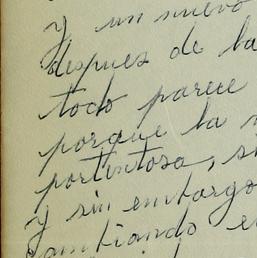 y un nuevo
despues de la
todo parece
porque la
portentosa, s
y sin embargo
cambiando e